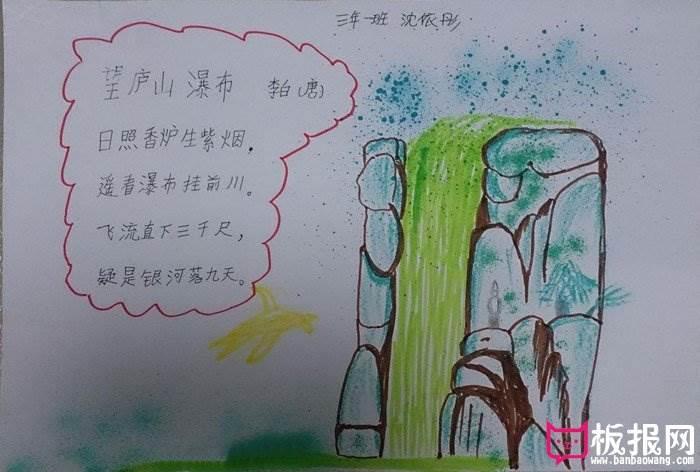 三年一班 沈依彤
望庐山瀑布 李白(唐)
日照香炉生紫烟,
遥看瀑布挂前川。
飞流直下三千尺,
疑是银河落九天。
板报网
www.banbaowang.com